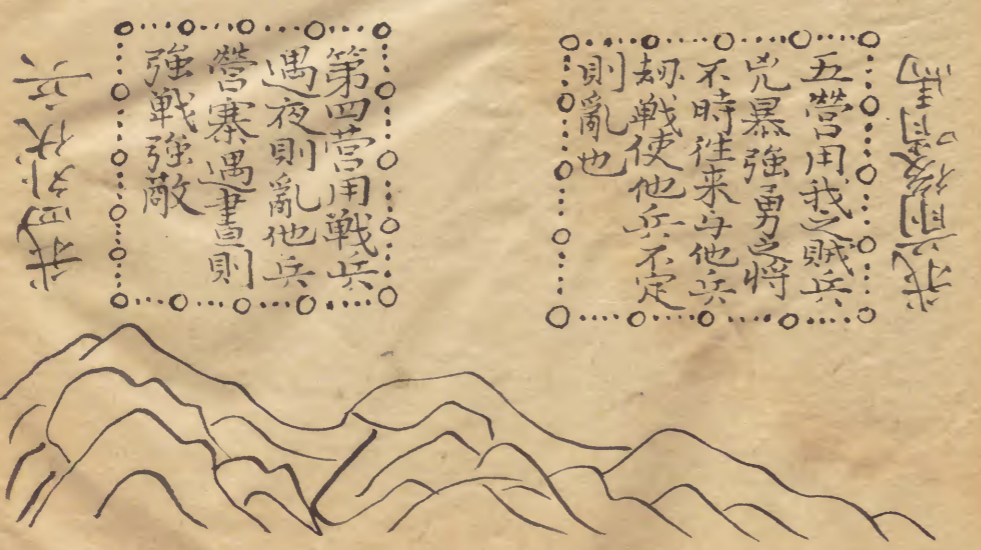 我前後哨馬
五營用我之賊兵
兇暴強勇之將
不時往来与他兵
刼戦使他兵不定
則亂也
第四营用戦兵
遇夜則亂他兵
營寨遇晝則
強戦強敵
我四伏兵